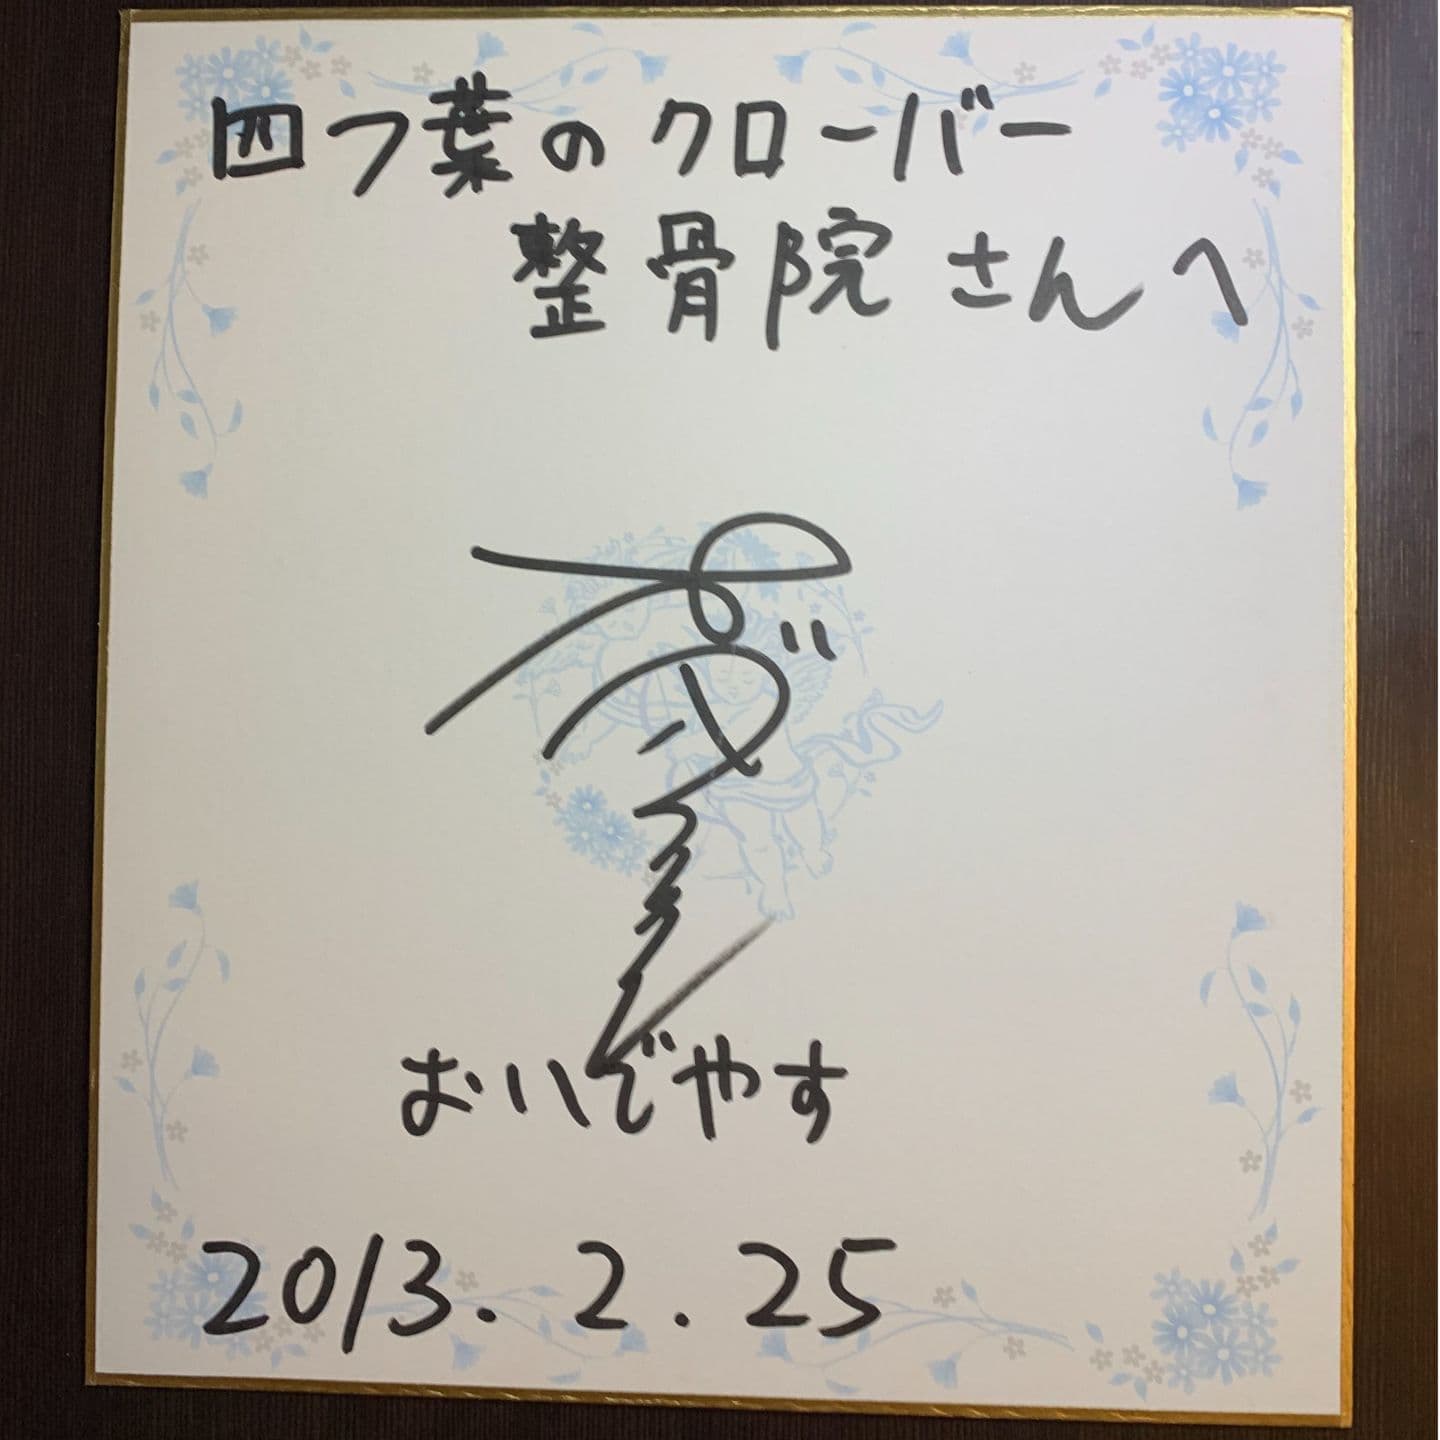 四つ葉のクローバー
整骨院さんへ
おいでやす
2013.2.25